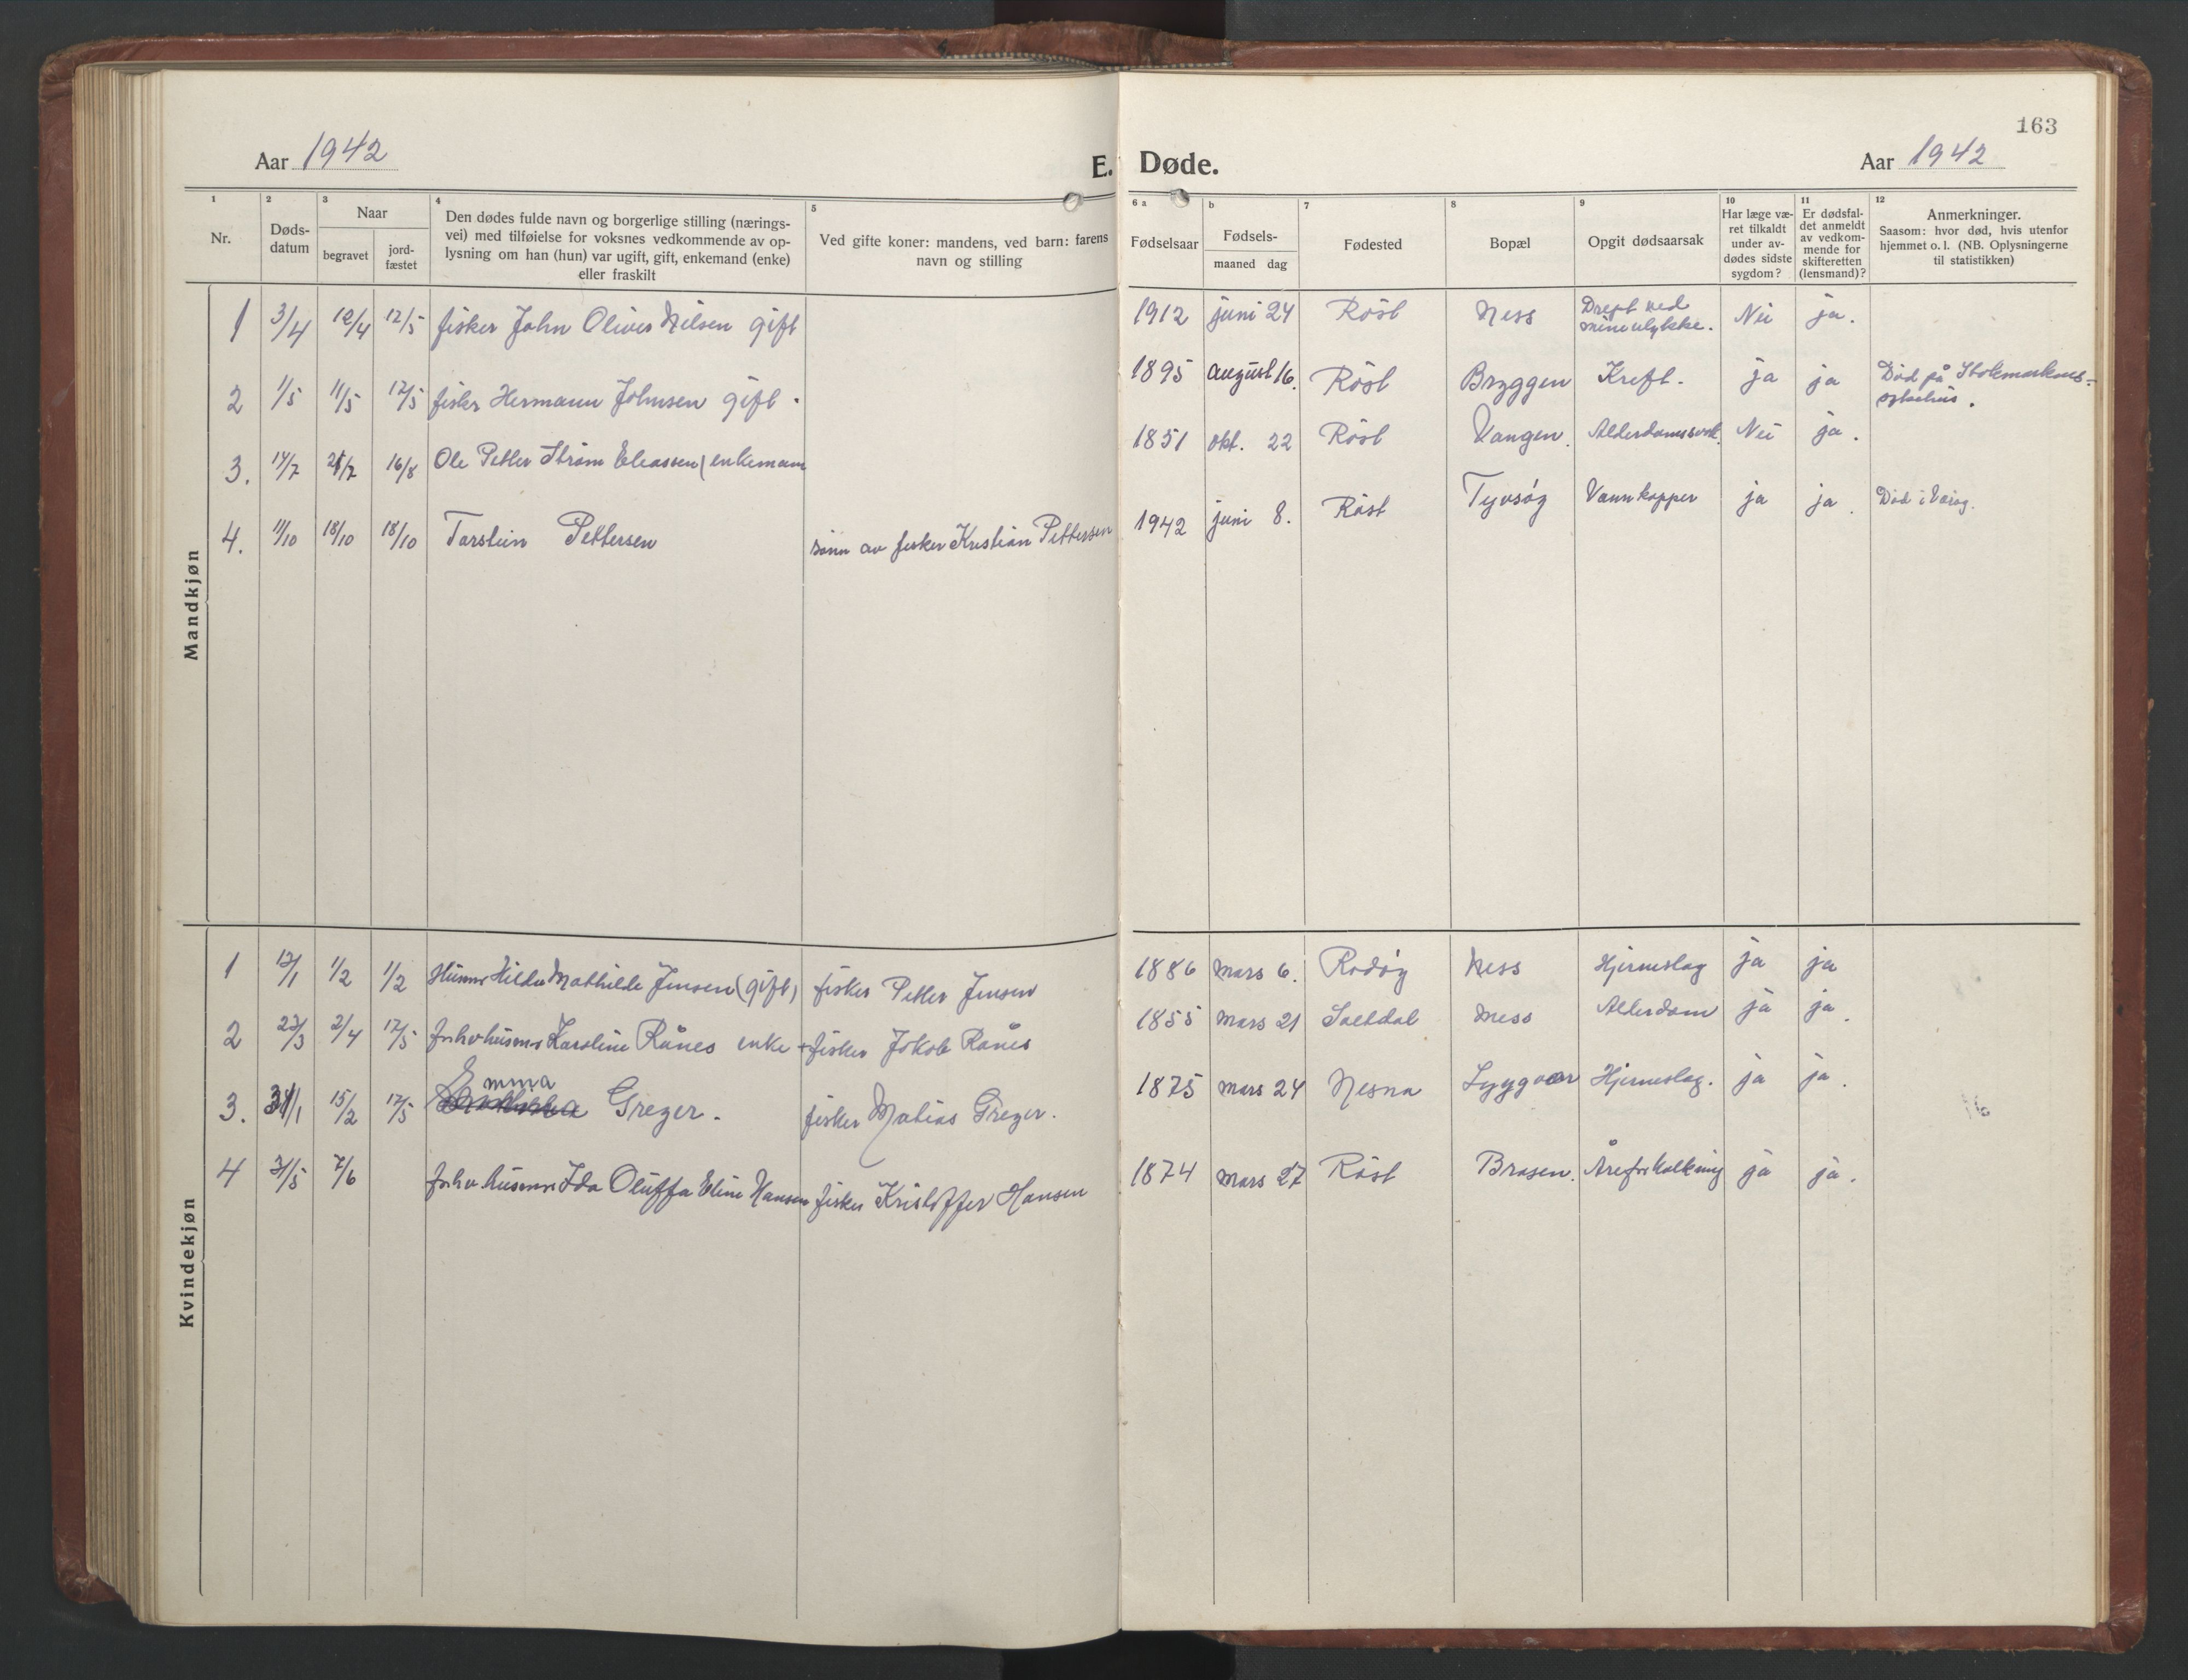 163
Aar 1942
E. Døde.
Aar 1942
1 2 3 4 5 6 a b 7 8 9 10 11 12
Nr.
Døds-
datum
Naar
begravet
jord-
fæstet
Den dødes fulde navn og borgerlige stilling (nærings-
vei) med tilføielse for voksnes vedkommende av op-
lysning om han (hun) var ugift, gift, enkemand (enke)
eller fraskilt
Ved gifte koner: mandens, ved barn: farens
navn og stilling
Fødselsaar
Fødsels-
maaned dag
Fødested
Bopæl
Opgit dødsaarsak
Har læge væ-
ret tilkaldt
under av-
dødes sidste
sygdom?
Er dødsfal-
det anmeldt
av vedkom-
mende for
skifteretten
(lensmand)?
Anmerkninger.
Saasom: hvor død, hvis utenfor
hjemmet o. l. (NB. Oplysningerne
til statistikken)
Mandkjøn
1 3/4 12/4 12/5 fisker John Oliver Nilsen gift 1912 juni 24 Röst Ness Drept ved
mineulykke. Nei ja.
2 1/5 11/5 17/5 fisker Hermann Johnsen gift. 1895 august 16. Röst Bryggen Kreft. ja ja Död på Stokmarknes-
sykehus.
3. 14/7 21/7 16/8 Ole Petter Ström Eleassen (enkemann 1851 okt. 22 Röst Vangen. Nei ja.
4. 11/10 18/10 18/10 Torstein Pettersen sönn av fisker Kristian Pettersen 1942 juni 8. Röst Tyvsöy Vannkopper ja ja. Död i Väröy.
Kvindekjøn
1 12/1 1/2 1/2 Husmor Hilda Mathilde Jensen (gift) fisker Petter Jensen 1886 mars 6. Rödöy Ness Hjerneslag ja ja
2 23/3 2/4 17/5 fhv husmor Karoline Rånes enke + fisker Jokob Rånes 1855 mars 21 Saltdal Ness Alderdom ja ja.
3. 31/1 15/2 17/5 Emma Greger. fisker Matias Greger. 1875 mars 24 Nesna Lyngvær Hjerneslag. ja ja.
4 31/5 7/6 fhv. husmor Ida Oluffa Eline Hansen fisker Kristoffer Hansen 1874 mars 27 Röst Brasen. Åreforkalkning ja ja.